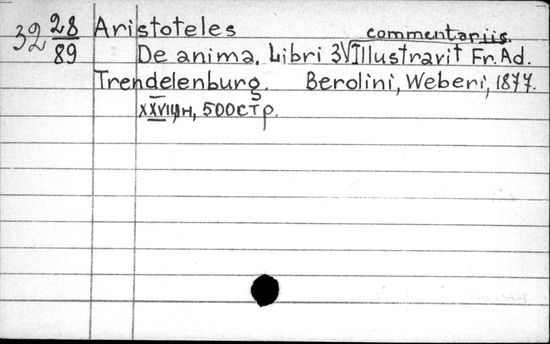 32 28/89 Aristoteles
De anima. Libri 3 commentariis. Illustravit Fr. Ad.
Trendelenburg. Berolini, Weberi, 1877.
500 стр.